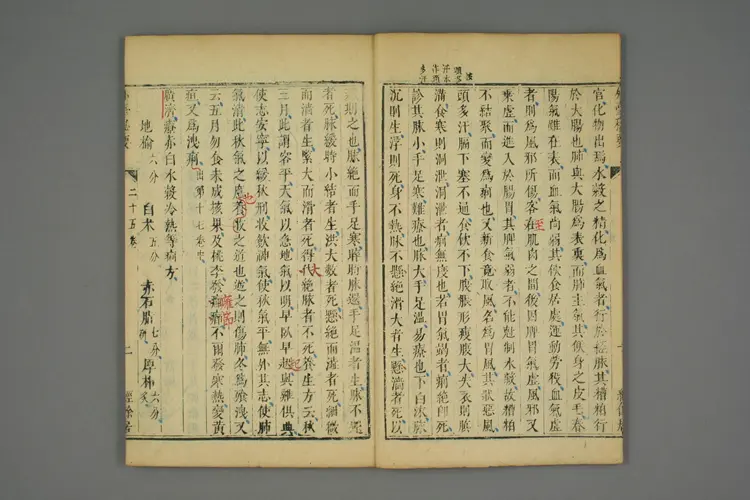 官化物出焉水穀之精化爲血氣者行於經脉其糟粕行
於大腸也肺與大腸爲表裏而肺主氣其候身之皮毛春
陽氣雖在表而血氣尚弱其飲食居處運動勞役血氣虛
者則爲風邪所傷客在肌肉之間後因脾胃氣虛風邪又
乘虛而進入於腸胃其脾氣弱者不能尅制水穀故糟粕
不結聚而變爲痢也又新食竟取風名爲胃風其狀惡風
頭多汗膈下塞不通食飲不下腹脹形瘦腹大失衣則脹
滿食寒則洞泄洞泄者痢無度也若胃氣竭者痢絶即死
診其脉小手足寒難療也脉大手足溫易療也下白沫脉
沉則生浮則死身不熱脉不懸絶滑大者生懸濇者死以
期之也脉絶而手足寒脉還手足溫者生脉不還
者死脉緩時小結者生洪大數者死懸絶而濇者死細微
而濇者生緊大而滑者死得代絶脉者不死養生方云秋
三月此謂容平天氣以急地氣以明早臥早起與雞俱興
使志安寧以緩秋刑收斂神氣使秋氣平無外其志使肺
氣清此秋氣之應養收之道也逆之則傷肺冬爲飧洩又
云五月勿食未成核果及桃李發癰癤不爾發寒熱變黃
疸又爲洩痢 出第十七卷中
廣濟療赤白水穀冷熱等痢方
地榆六分 白朮五分 赤石脂七分研 厚朴六分炙
二十五卷
經餘居